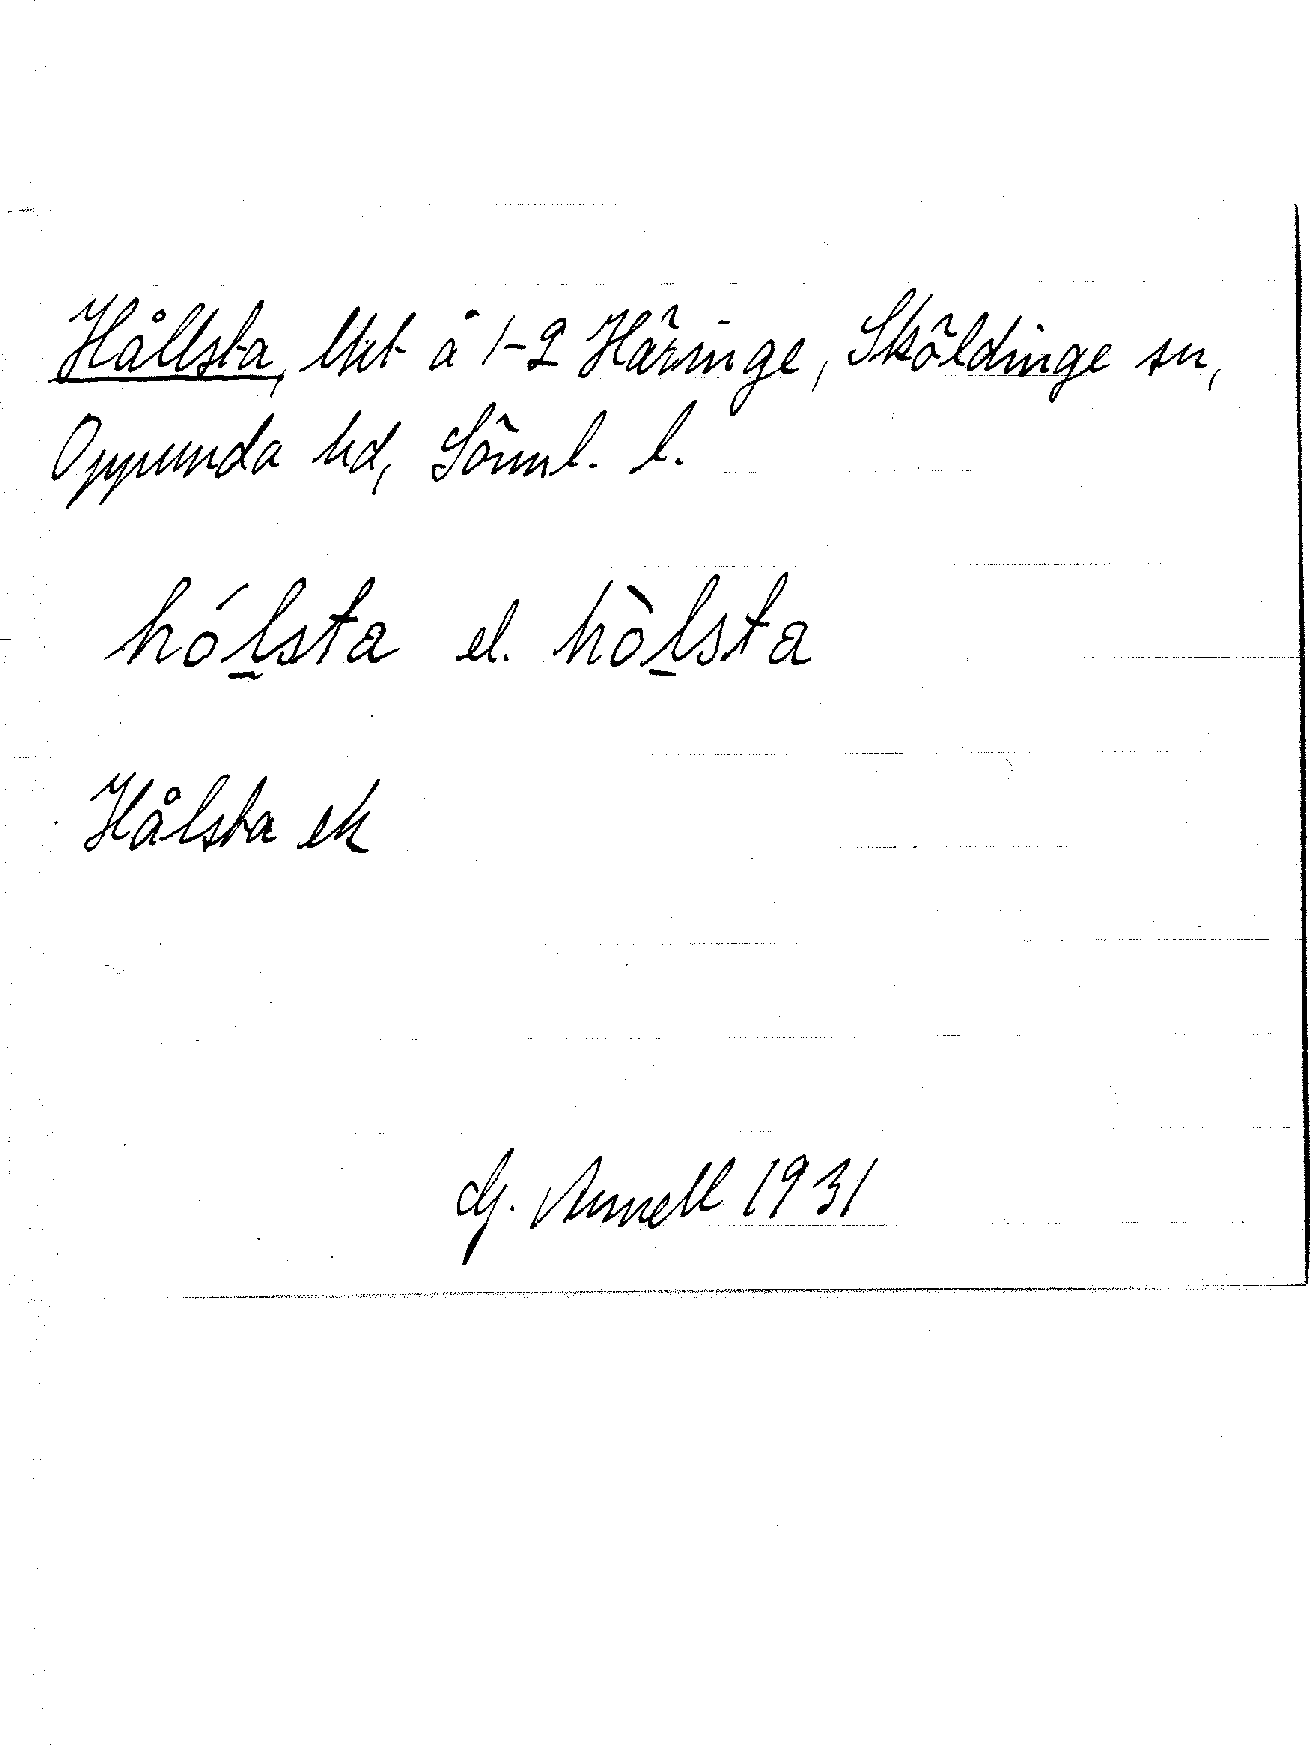 Hållsta, lht å 1-2 Häringe, Sköldinge sn,
Oppunda hd, Sörml. l.
hól̲sta el. hòl̲sta
Hålsta ek
G. Annell 1931